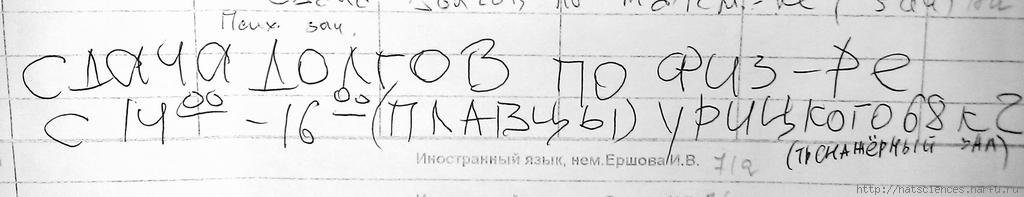 Псих. зач.
СДАЧА ДОЛГОВ ПО ФИЗ-РЕ
С 14 00 - 16 00 (ПЛАВЦЫ) УРИЦКОГО 68 к 2
(ТРЕНАЖЁРНЫЙ ЗАЛ)
Иностранный язык, нем.Ершова И.В. 712
http://natsciences.narfu.ru